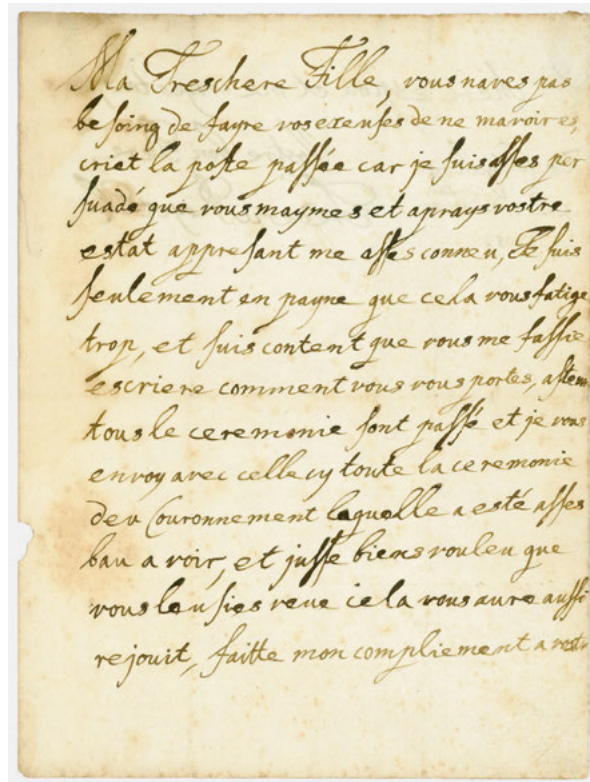 Ma Treschere Fille, vous naves pas
besoing de fayre vos excuses de ne mavoir es,
criet la poste passée car je suis asses per
suadé que vous maymes et aprays vostre
estat appresant me asses conneu, Je suis
seulement en payne que cela vous fatige
trop, et suis content que vous me fassie
escriere comment vous vous portes,
tous le ceremonie sont passé et je vous
envoy avec celle cy toute la ceremonie
deu Couronnement laquelle a esté asses
bau a voir, et jusse biens vouleu que
vous leusies veue cela vous aure aussi
rejouit, faitte mon compliement a vostr